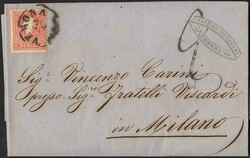 VERONA
Sig.r Vincenzo Carini
presso Sig.ri Fratelli Viscardi
in Milano